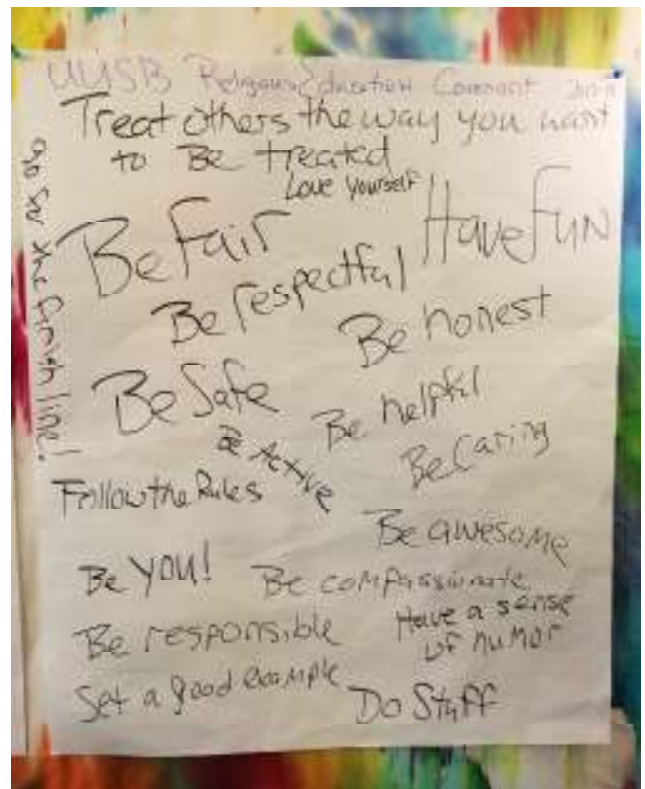 UUSB Religious Education Covenant
Treat others the way you want
to Be treated
Love Yourself
go for the finish line!
Be fair
Have fun
Be respectful
Be honest
Be Safe
Be helpful
Be Active
Be Caring
Follow the Rules
Be awesome
Be YOU!
Be compassionate
Be responsible
Have a sense
of humor
Set a good example
Do Stuff